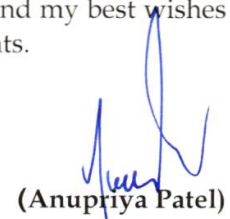 nd my best wishes
ts.
(Anupriya Patel)